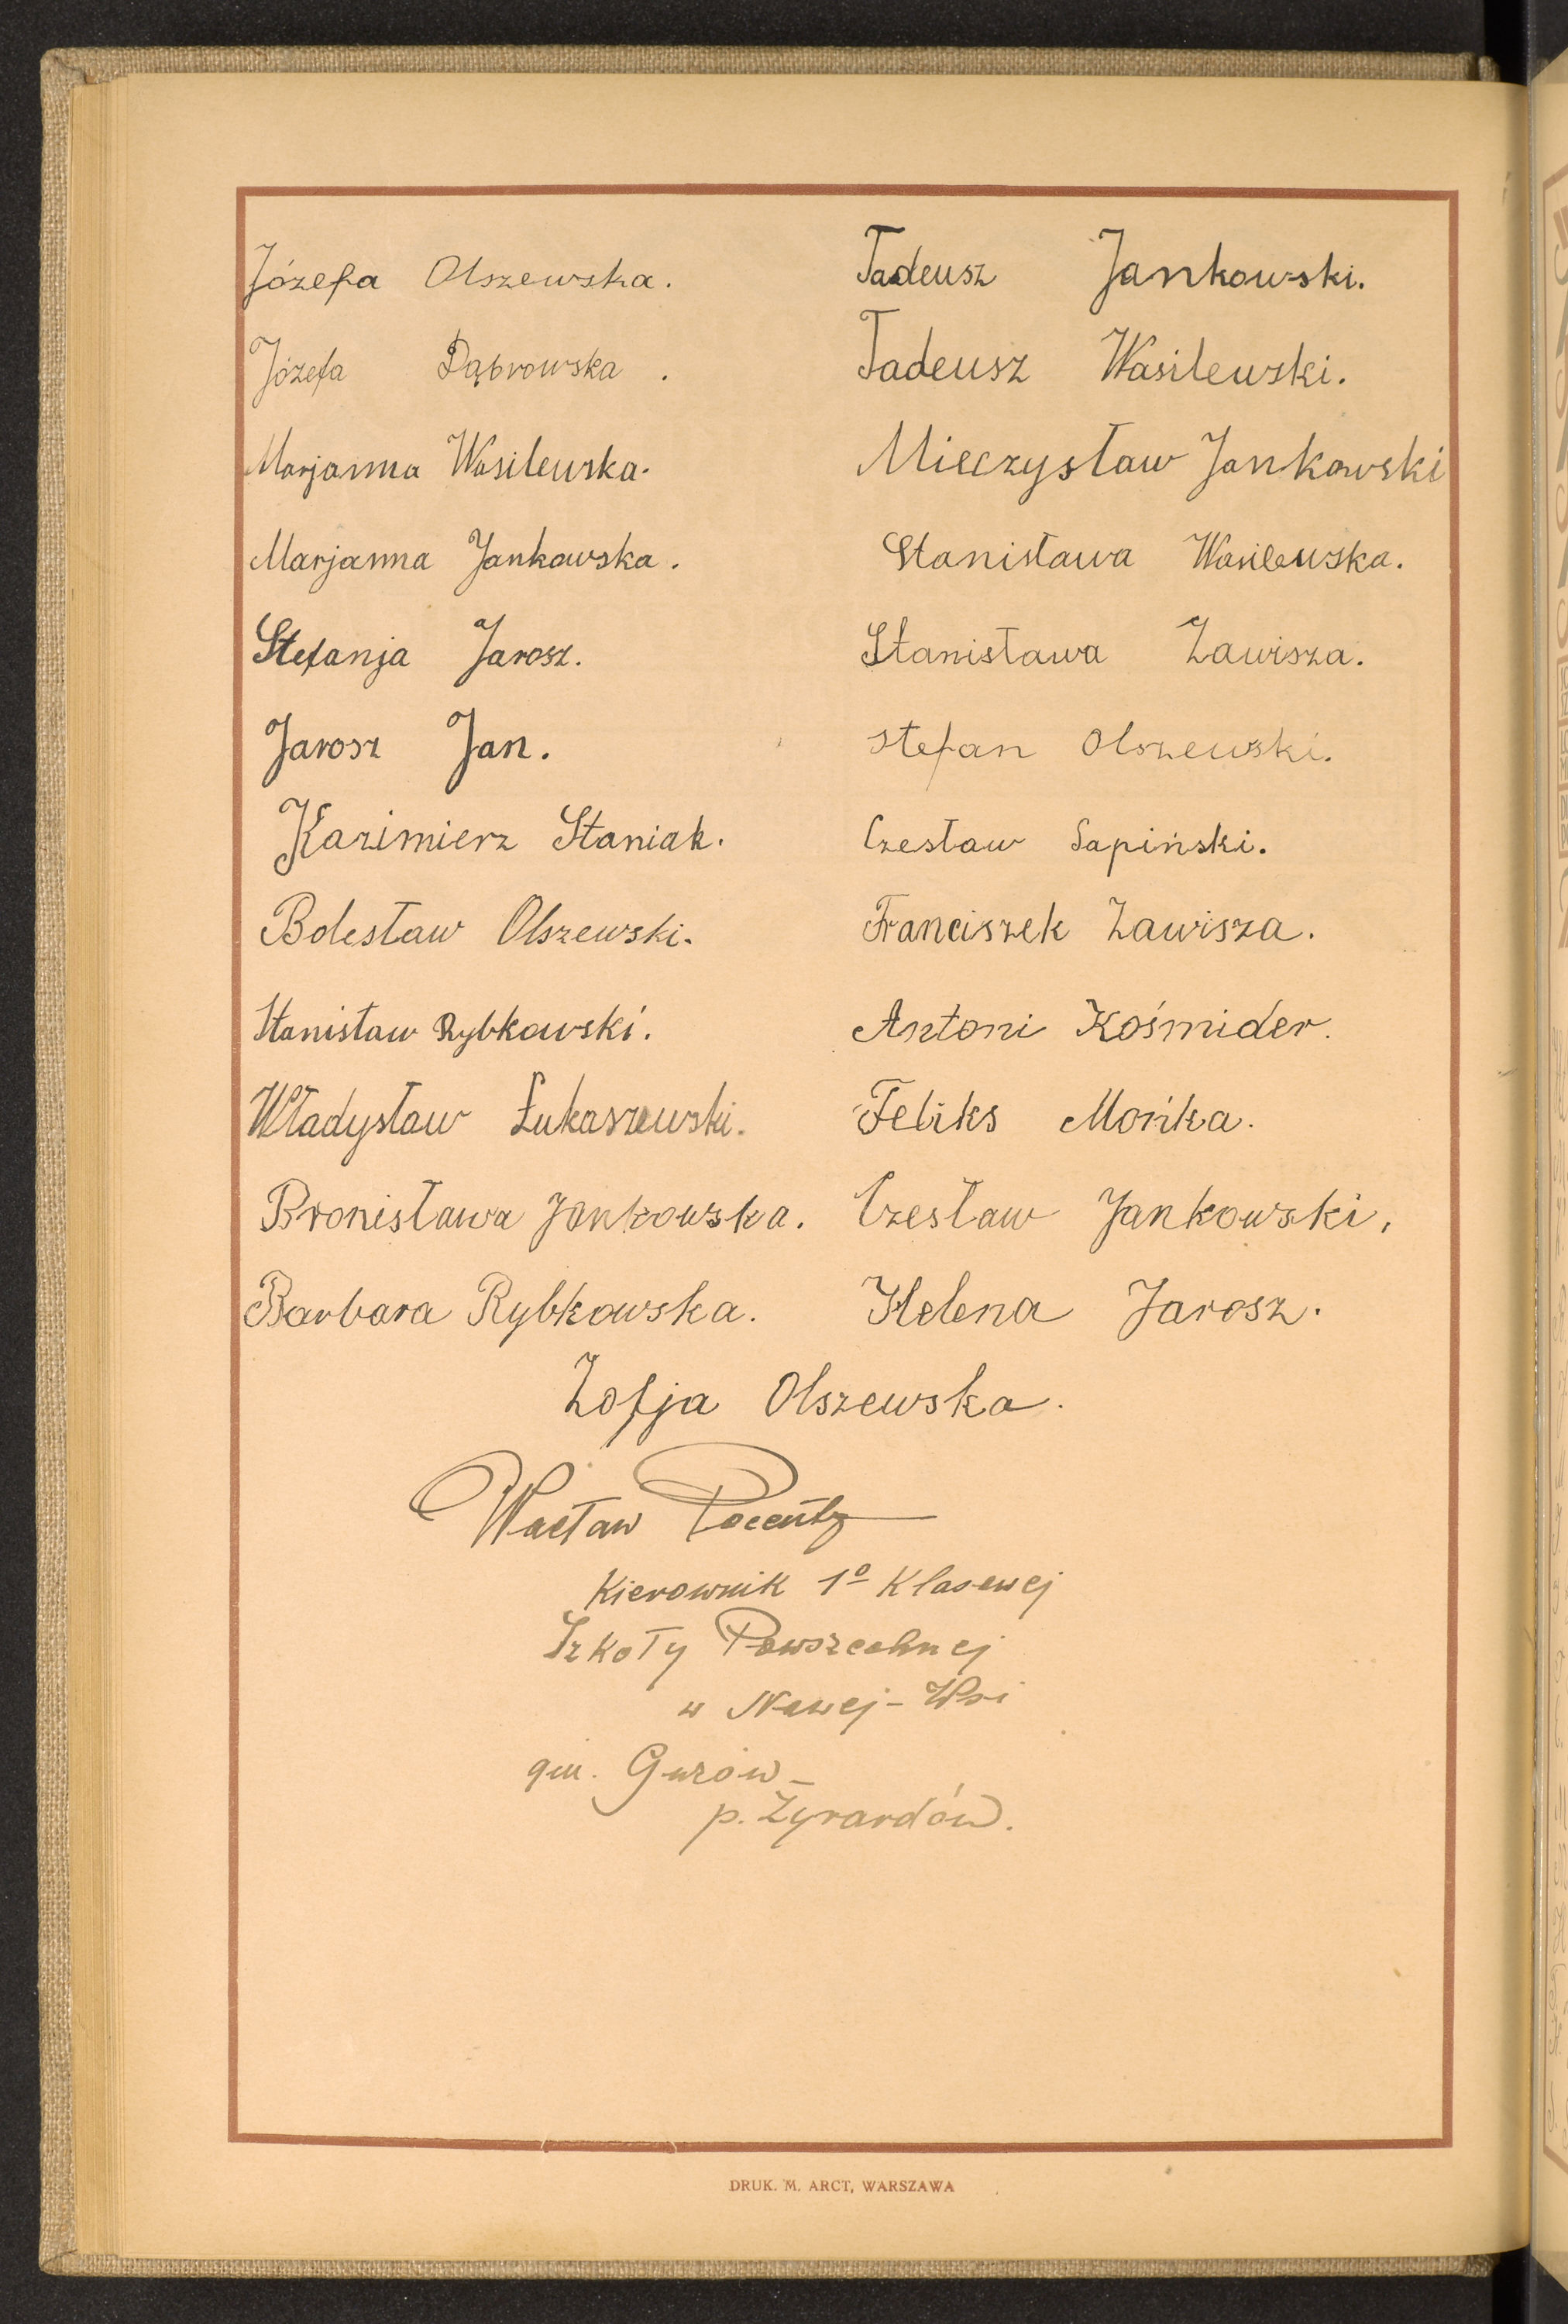 Józefa Olszewska.
Józefa Dąbrowska.
Marjanna Wasilewska.
Marjanna Jankowska.
Stefanja Jarosz.
Jarosz Jan.
Kazimierz Staniak.
Bolesław Olszewski.
Stanisław Rybkowski.
Władysław Łukaszewski.
Bronisława Jankowska.
Barbara Rybkowska.
Tadeusz Jankowski.
Tadeusz Wasilewski.
Mieczysław Jankowski
Stanisława Wasilewska.
Stanisława Zawisza.
Stefan Olszewski.
Czesław Sapiński.
Franciszek Zawisza.
Antoni Kośmider.
Feliks Mońka.
Czesław Jankowski,
Helena Jarosz.
Zofja Olszewska.
Wacław
Kierownik 1º Klasowej
Szkoły Powszechnej
w Nowej-Wsi
gm. Guzów –
p. Żyrardów.
DRUK. M. ARCT, WARSZAWA